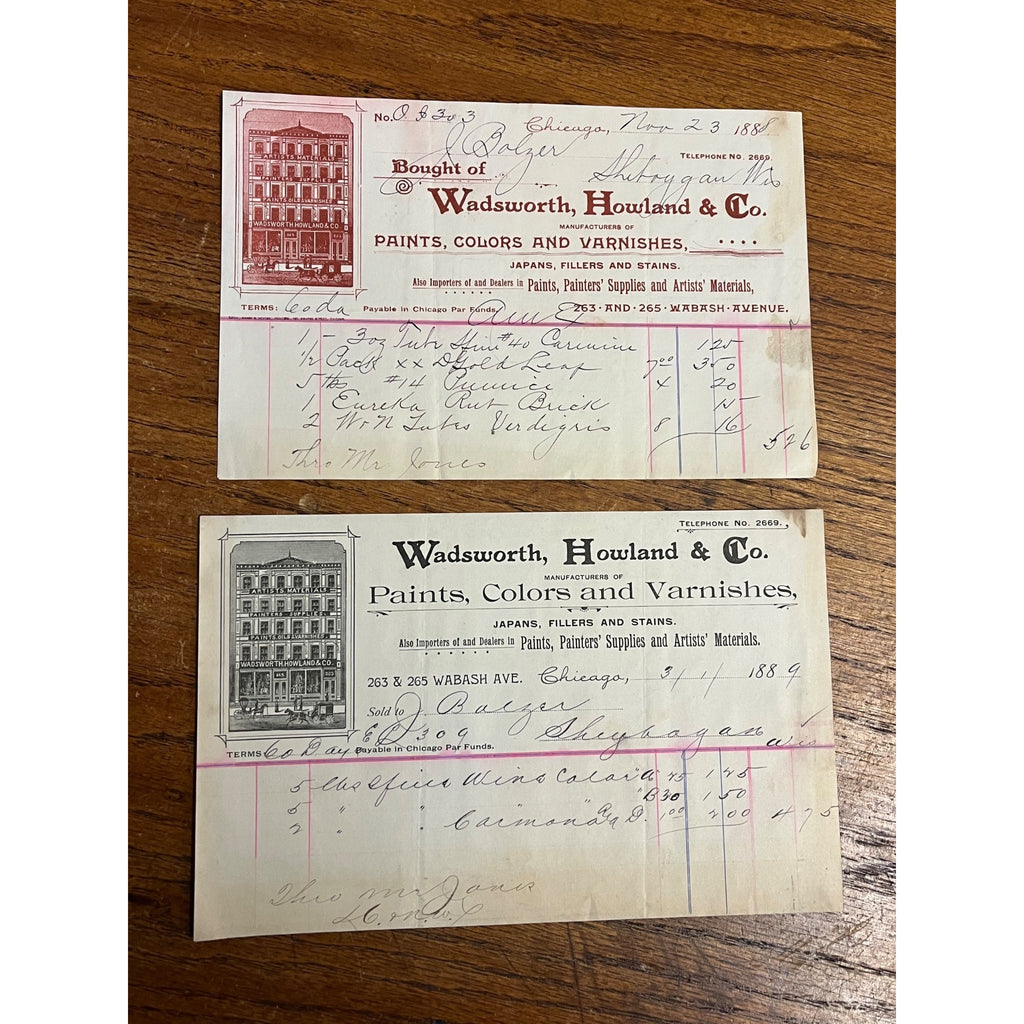 No. O 8303 Chicago, Nov 23 1888
J Balzer
TELEPHONE NO. 2669.
Bought of Sheboygan Wis
Wadsworth, Howland & Co.
MANUFACTURERS OF
PAINTS, COLORS AND VARNISHES,
JAPANS, FILLERS AND STAINS.
Also Importers of and Dealers in Paints, Painters' Supplies and Artists' Materials,
TERMS: 60 da Payable in Chicago Par Funds. Am Ex 263 · AND · 265 · WABASH · AVENUE.
ARTISTS MATERIALS
PAINTERS SUPPLIES
PAINTS OILS & VARNISHES
WADSWORTH. HOWLAND & CO.
1 - 3 oz Tube #40 Carmine 125
1/2 Pack XX D Gold Leaf 7 00 350
5 lbs #14 Pumice 4 20
1 Eureka Rub Brick 15
2 W & N Tubes Verdigris 8 16 526
Thro Mr Jones
TELEPHONE NO. 2669.
Wadsworth, Howland & Co.
MANUFACTURERS OF
Paints, Colors and Varnishes,
JAPANS, FILLERS AND STAINS.
Also Importers of and Dealers in Paints, Painters' Supplies and Artists' Materials.
263 & 265 WABASH AVE. Chicago, 3/1/ 1889
Sold to J. Balzer
TERMS 60 Days Payable in Chicago Par Funds. E 309 Sheybogan Wis
ARTISTS MATERIALS
PAINTERS SUPPLIES.
PAINTS OILS & VARNISHES
WADSWORTH. HOWLAND & CO.
5 lbs Wine Color "A 25 125
5 " " "B 30 150
2 " " D. 1 00 200 475
Thro Mr Jones